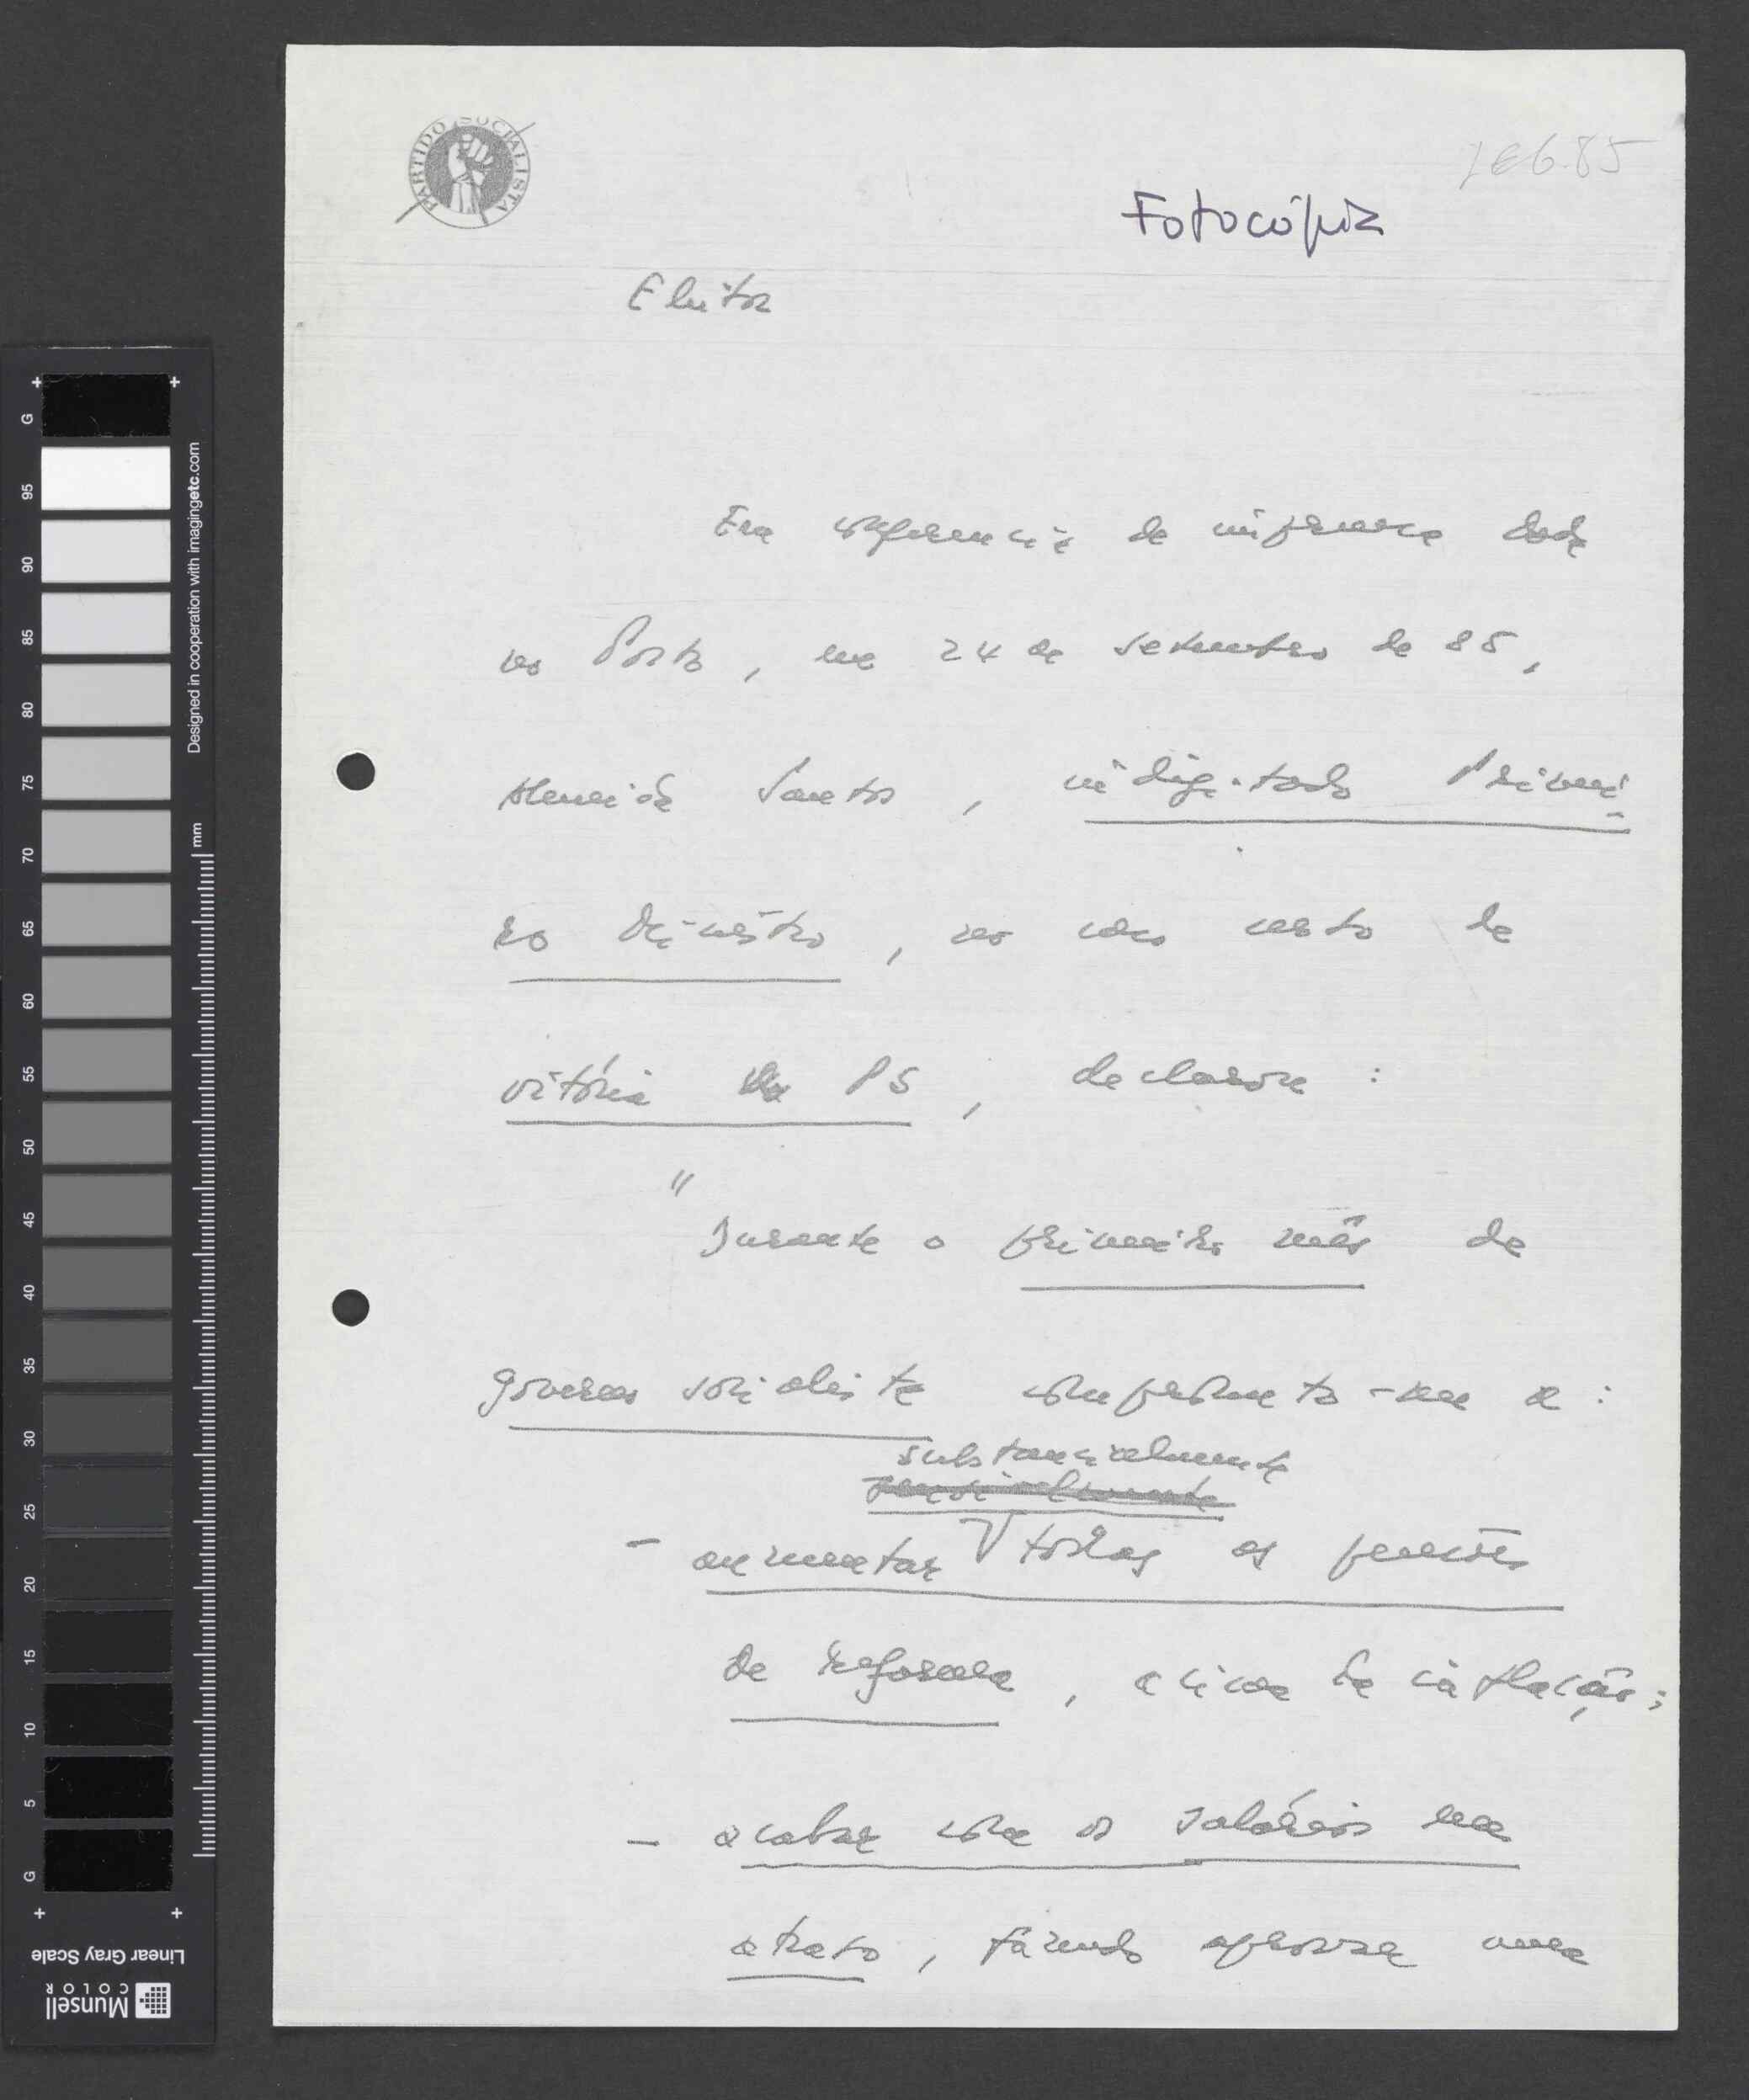 PARTIDO SOCIALISTA
Fotocópia
Eleitor
Em conferência de imprensa dada
no Porto, em 24 de setembro de 85,
Almeida Santos, indigitado Primei-
ro Ministro, no caso de
vitória do PS, declarou:
"Durante o primeiro mês de
governo socialista comprometo-me a:
substancialmente
- aumentar todas as pensões
de reforma, acima da inflação;
- acabar com os salários em
atraso, fazendo aprovar uma
G
95
90
85
80
75
70
65
60
55
50
45
40
35
30
25
20
15
10
5
G
Designed in cooperation with imagingetc.com
mm
Linear Gray Scale
Munsell
COLOR